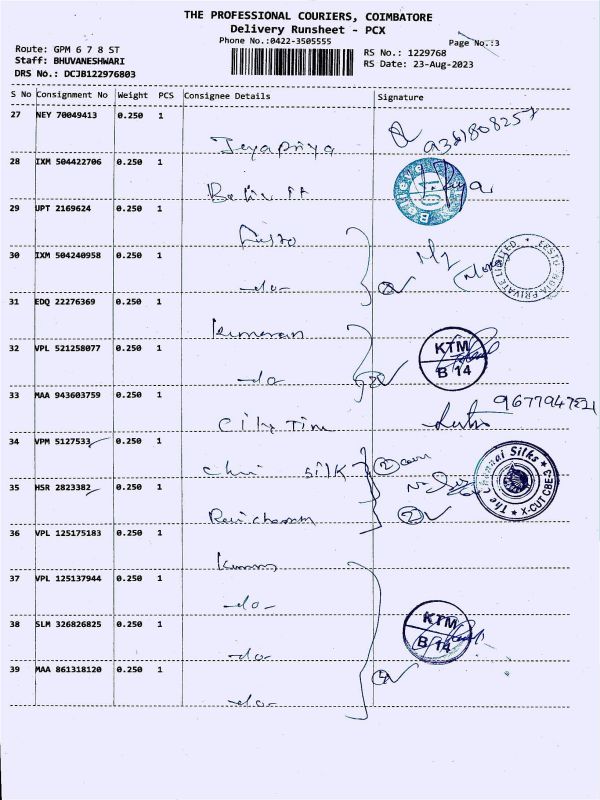 THE PROFESSIONAL COURIERS, COIMBATORE
Delivery Runsheet - PCX
Phone No.:0422-3505555
Page No.:3
Route: GPM 6 7 8 ST
RS No.: 1229768
Staff: BHUVANESHWARI
RS Date: 23-Aug-2023
DRS No.: DCJB122976803
S No Consignment No Weight PCS Consignee Details Signature
27 NEY 70049413 0.250 1
Jeyapriya
28 IXM 504422706 0.250 1
29 UPT 2169624 0.250 1
30 IXM 504240958 0.250 1
-do-
31 EDQ 22276369 0.250 1
Kumaran
32 VPL 521258077 0.250 1
KTM
B 14
-do
33 MAA 943603759 0.250 1
City Tim
34 VPM 5127533 0.250 1
silk
The Chennai Silks
X-CUT CBE-3
35 HSR 2823382 0.250 1
36 VPL 125175183 0.250 1
37 VPL 125137944 0.250 1
-do-
38 SLM 326826825 0.250 1
KTM
B 14
-do-
39 MAA 861318120 0.250 1
-do-